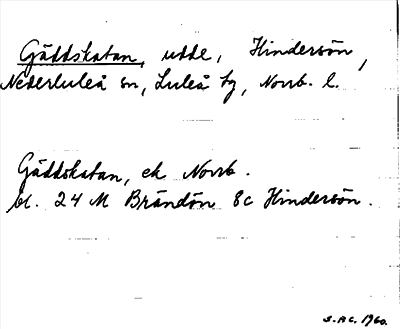 Gäddskatan, udde, Hindersön,
Nederluleå sn, Luleå tg, Norrb. l.
Gäddskatan, ek Norrb.
bl. 24 M Brändön 8c Hindersön.
S.AC. 1960.